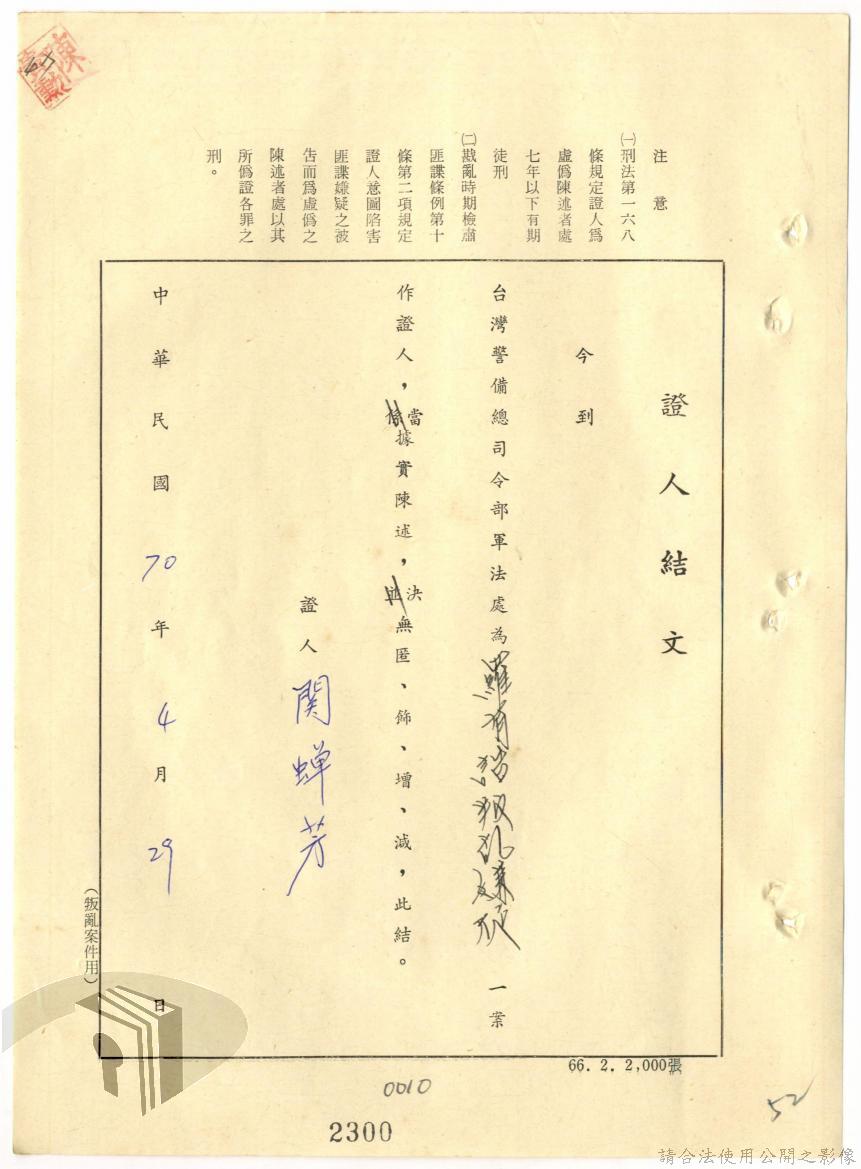 證人結文
今到
台灣警備總司令部軍法處為羅有浩叛亂嫌疑一案
作證人，當據實陳述，決無匿、飾、增、減，此結。
係
並
證人 關蟬芳
中華民國70年4月29日
注意
㈠刑法第一六八
條規定證人為
虛偽陳述者處
七年以下有期
徒刑
㈡戡亂時期檢肅
匪諜條例第十
條第二項規定
證人意圖陷害
匪諜嫌疑之被
告而為虛偽之
陳述者處以其
所偽證各罪之
刑。
（叛亂案件用）
66. 2. 2,000張
0010
2300
52
請合法使用公開之影像